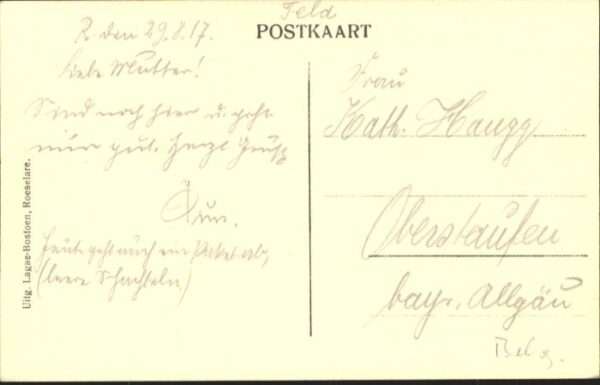 Feld
POSTKAART
R. den 29.8.17.
Liebe Mutter!
Sind noch hier u. geht
mir gut. Herzl Gruß
Heute geht auch ein Paket ab,
(leere Schachteln)
Frau
Kath. Haugg
Oberstaufen
bayr. Allgäu
Uitg. Lagae-Bostoen, Roeselare.